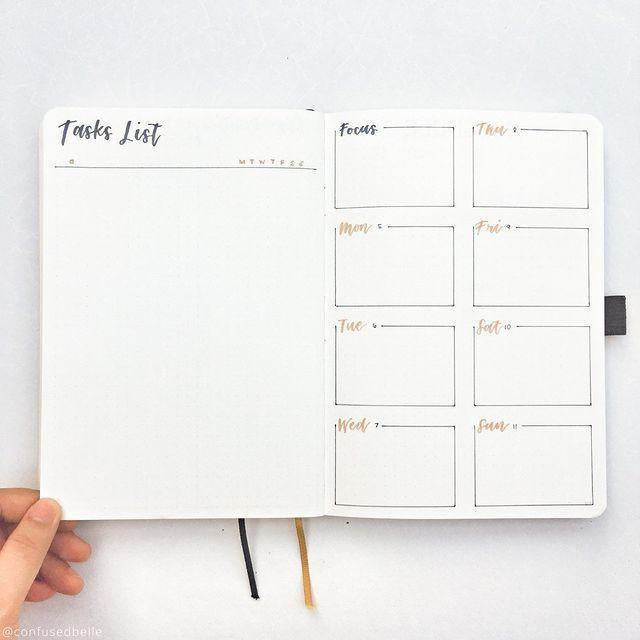 Tasks List
M T W T F S S
Focus
Mon 5
Tue 6
Wed 7
Thu 8
Fri 9
Sat 10
Sun 11
@confusedbelle